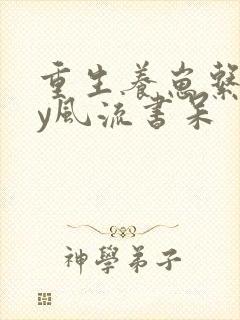 重生养崽繫
y風流書呆
神學弟子